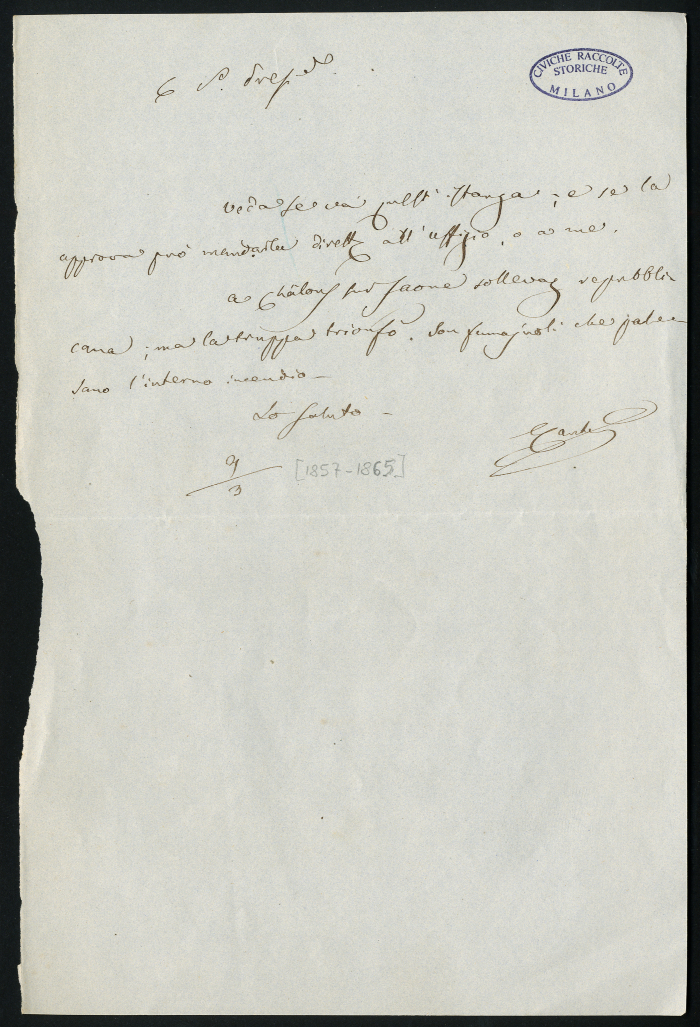 CIVICHE RACCOLTE
STORICHE
MILANO
C. S. Presid.
Veda se va quest'istanza; e se la
approva può mandarla dirett. all'uffizio, o a me.
a Châlons sur Saone sollevaz repubbli
cana; ma la truppa trionfò. Son fumajuoli che pale-
sano l'interno incendio –
Lo saluto –
9/3 [1857-1865]